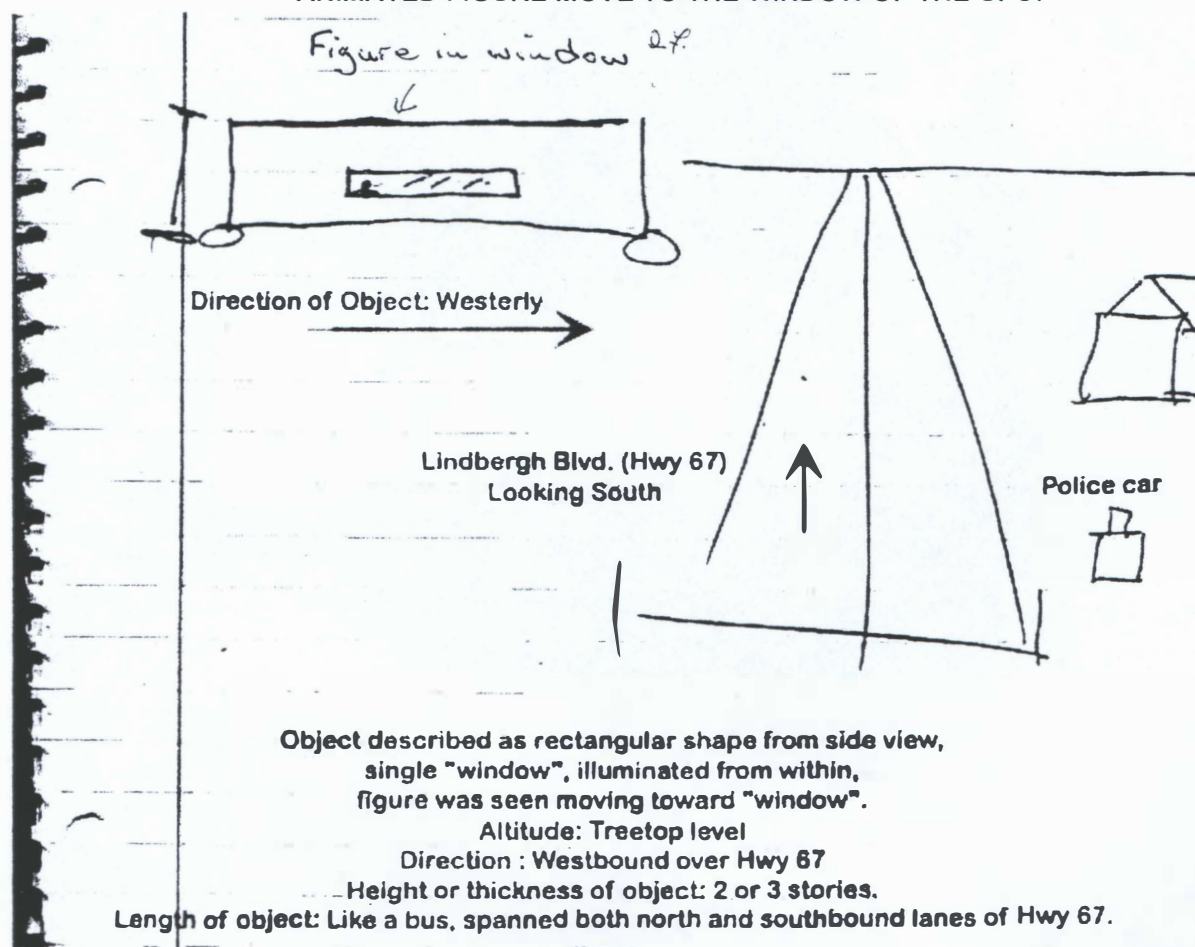 Figure in window
Direction of Object: Westerly
Lindbergh Blvd. (Hwy 67)
Looking South
Police car
Object described as rectangular shape from side view,
single "window", illuminated from within,
figure was seen moving toward "window".
Altitude: Treetop level
Direction : Westbound over Hwy 67
Height or thickness of object: 2 or 3 stories.
Length of object: Like a bus, spanned both north and southbound lanes of Hwy 67.